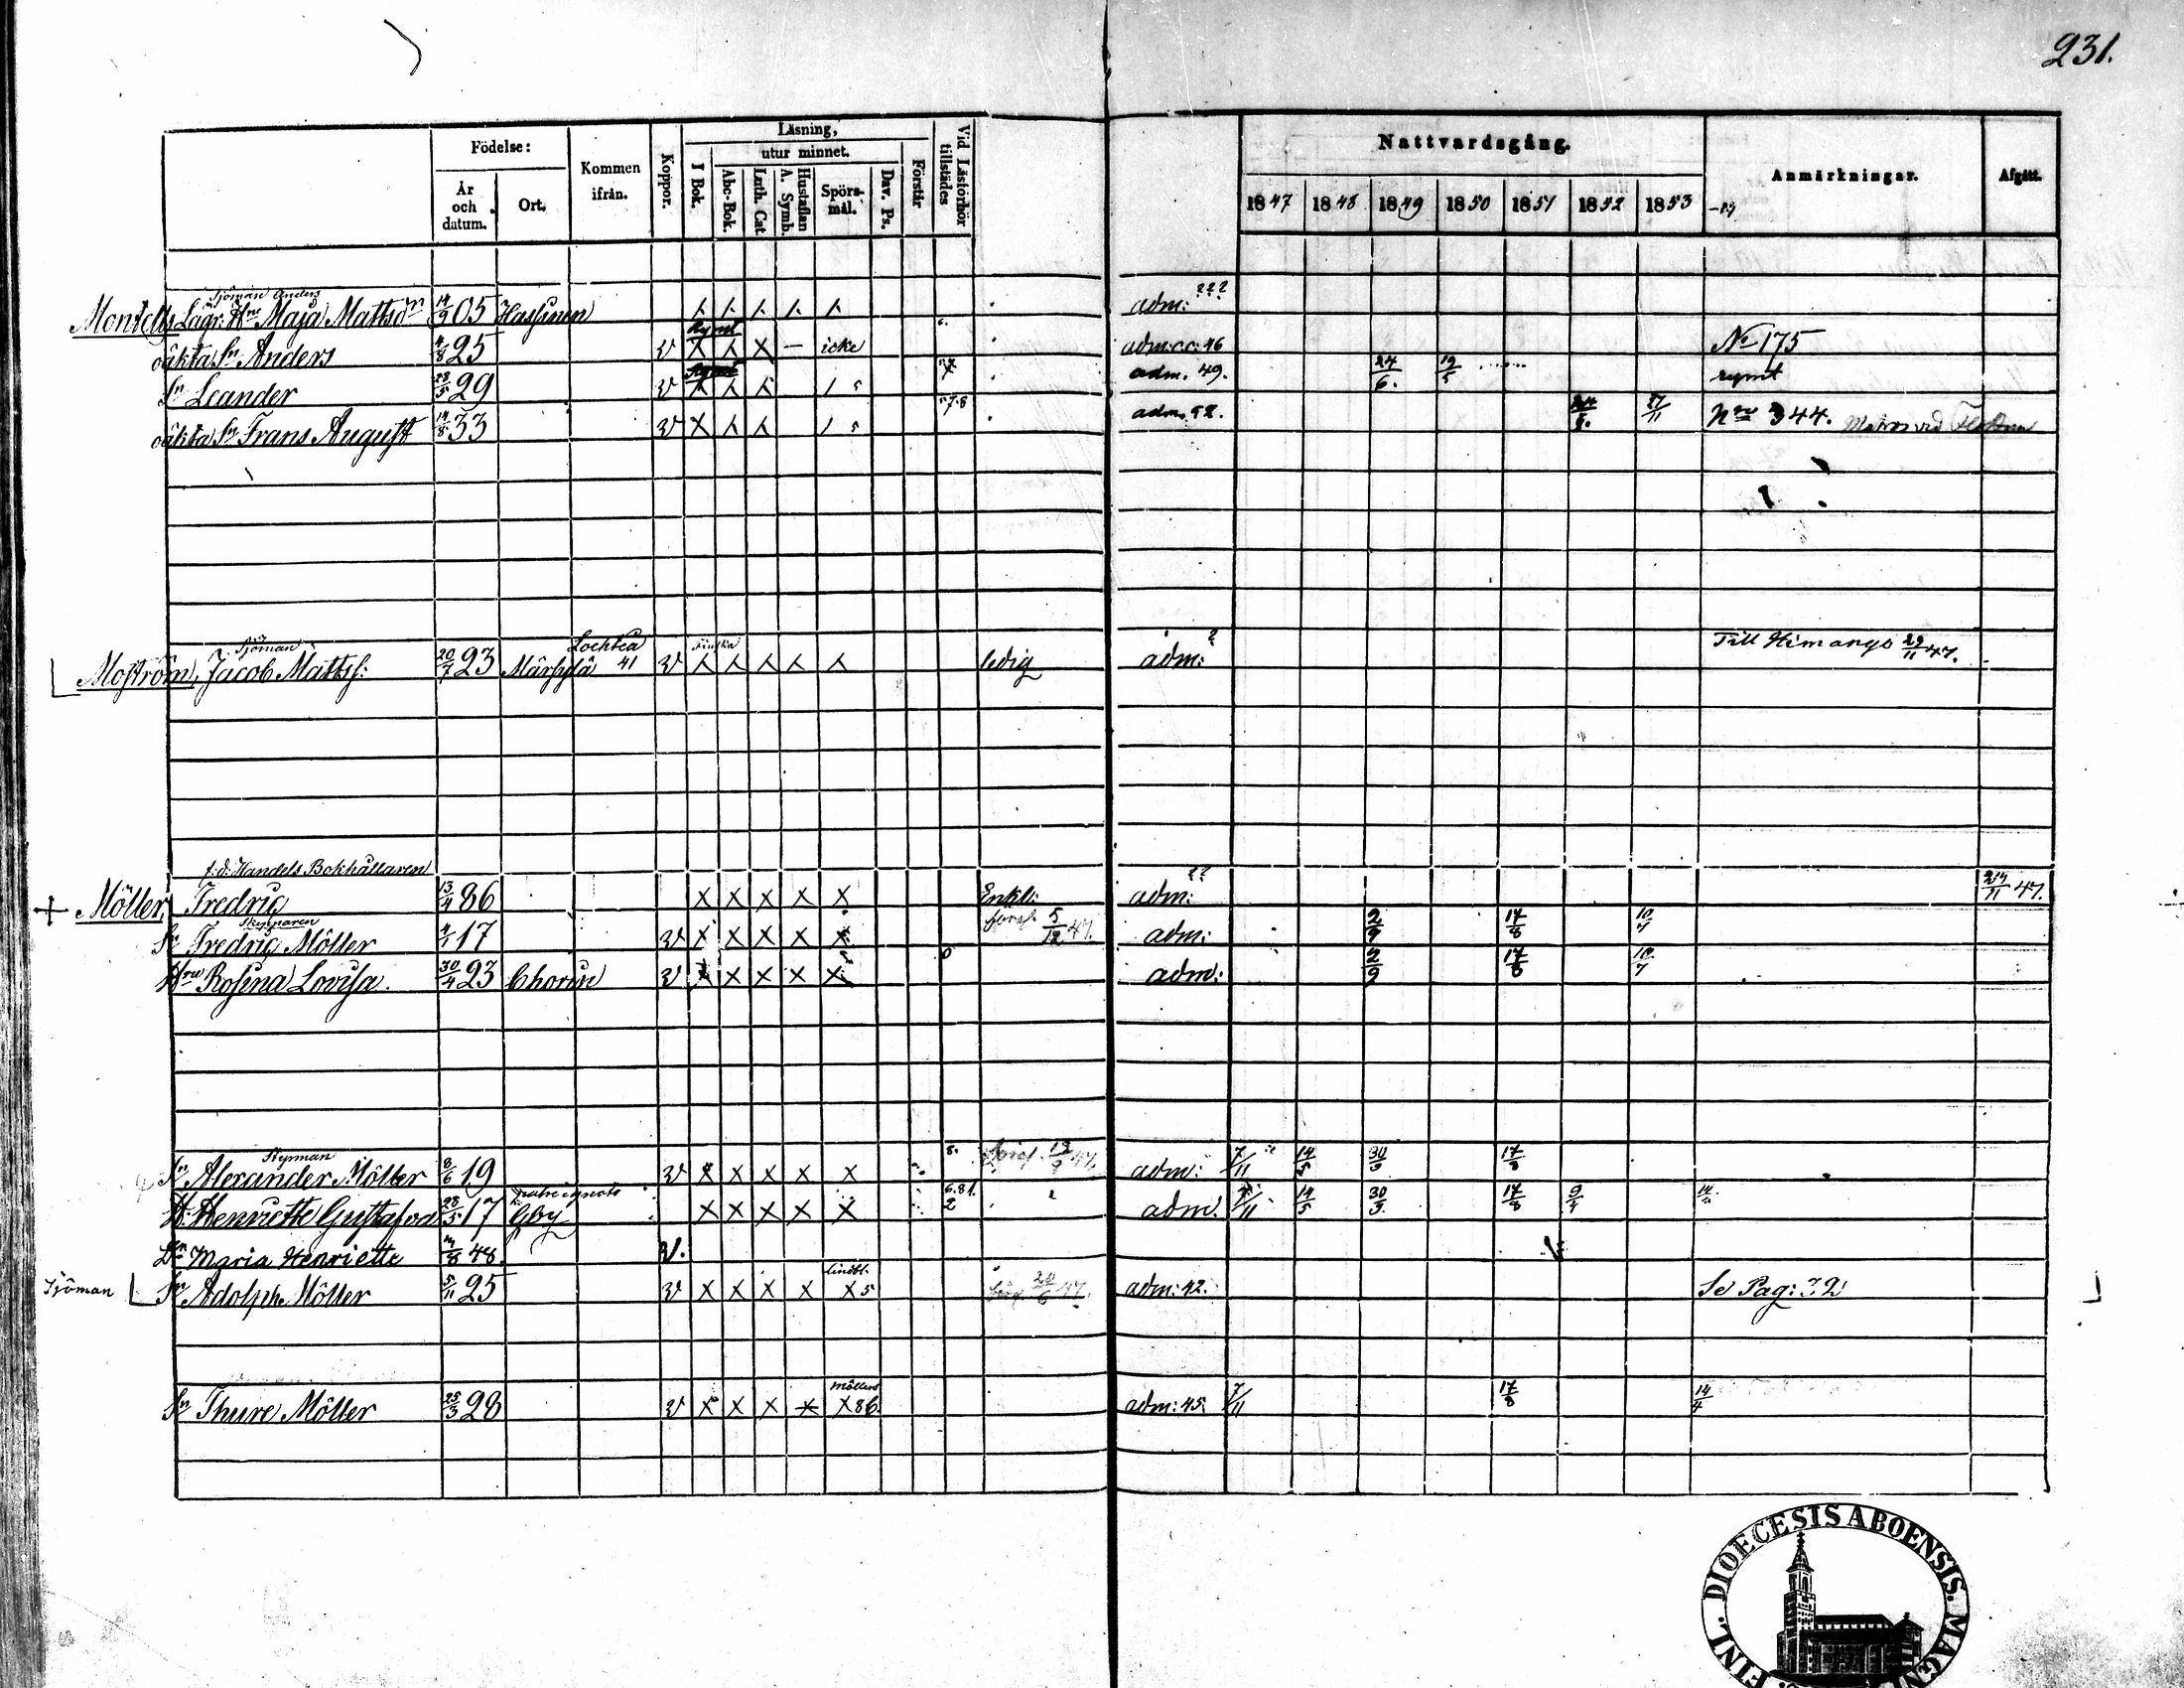 231.
Födelse:
År och datum.
Ort.
Kommen ifrån.
Koppor.
Läsning,
utur minnet.
I Bok.
Abc-Bok.
Luth. Cat.
Hustaflan A. Symb.
Spörs-mål.
Dav. Ps.
Förstår
Vid Läsförhör tillstädes
Nattvardsgång.
1847 1848 1849 1850 1851 1852 1853 -54
Anmärkningar.
Afgått.
Sjöman Anders
Montells Lägr: Hru Maja Mattsdr 14/9 05 Hassinen adm: ???
oäkta Sn Anders 4/8 25 v Rymt X — icke adm: cc: 46 No 175
Sn Leander 28/5 29 v 5 adm. 49. 24/6. 19/5 rymt
oäkta Sn Frans August 14/8 33 v X 5 "7.8 adm. 52. 27/11 Nro 344. Matros vid Flottan
Sjöman Lochteå Finska Till Himango 29/11 47.
Moström, Jacob Matts: 20/7 23 Märsylä 41 v ledig adm: ?
f.d. Handels Bokhållaren
+ Möller, Fredric 13/4 86 X X X X X Enkl: adm: ?? 47.
Skepparen
Sn Fredrig Möller 4/1 17 v X X X X X 5/12 47. adm: 2/9 17/8 10/7
Hru Rosina Lovisa 30/4 23 Chorin v X X X X X 0 adm: 2/9 17/8 10/7
Styrman
Sn Alexander Möller 8/6 19 v X X X X X 8. 47. adm: 7/11 14/5 30/9 17/8
H: Henriette Gustafva 28/5 17 Gby X X X X X 6.81. 2 adm: 7/11 14/5 30/9 17/8 9/4 14
Dr Maria Henriette 8 48 v.
Sjöman Sn Adolph Möller 5/11 25 v X X X X X 5 20/6 47. adm: 42. Se Pag: 32
Sn Thure Möller 25/3 28 v X X X X Möllers X 86 adm: 45. 7/11 17/8 14/4
FINL. DIOECESIS ABOENSIS. MAGN